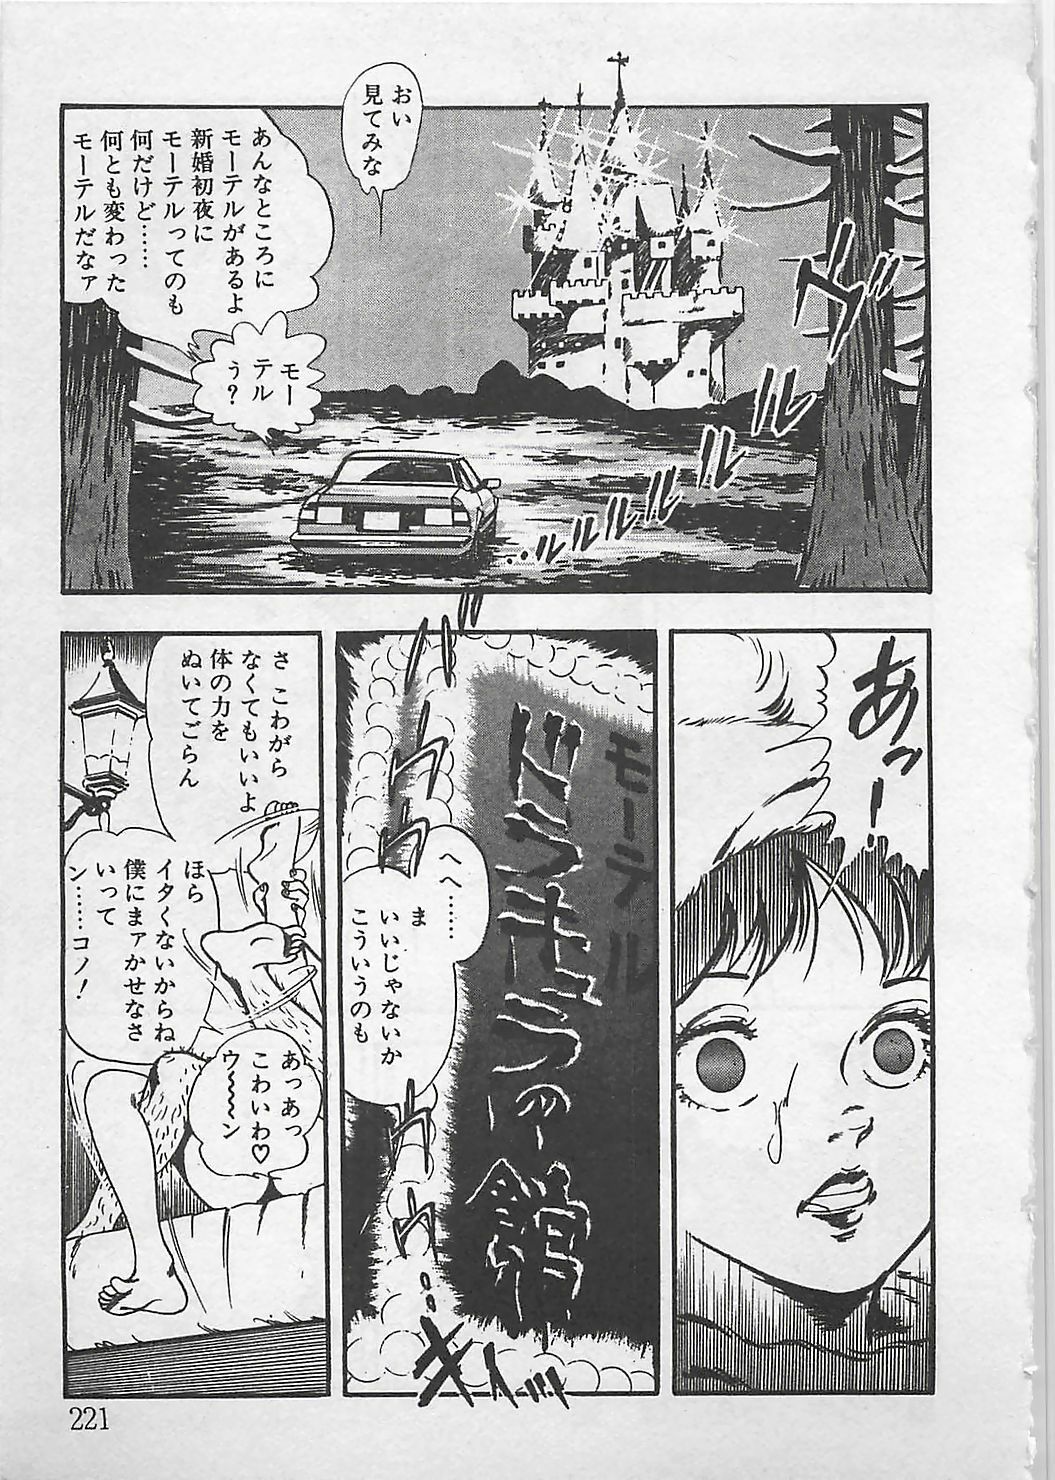 おい
見てみな
あんなところに
モーテルがあるよ
新婚初夜に
モーテルってのも
何だけど……
何とも変わった
モーテルだなァ
モー
テル
う?
ブ
ルルルルルル‥
あっ!
モーテル
ドラキュラの館
へへ……
ま
いいじゃないか
こういうのも
キイッ
さ こわがら
なくてもいいよ
体の力を
ぬいてごらん
ほら
イタくないからね
僕にまァかせなさ
いって
ン……コノ!
あっあっ
こわいわ♡
ウ〜〜〜ン
221